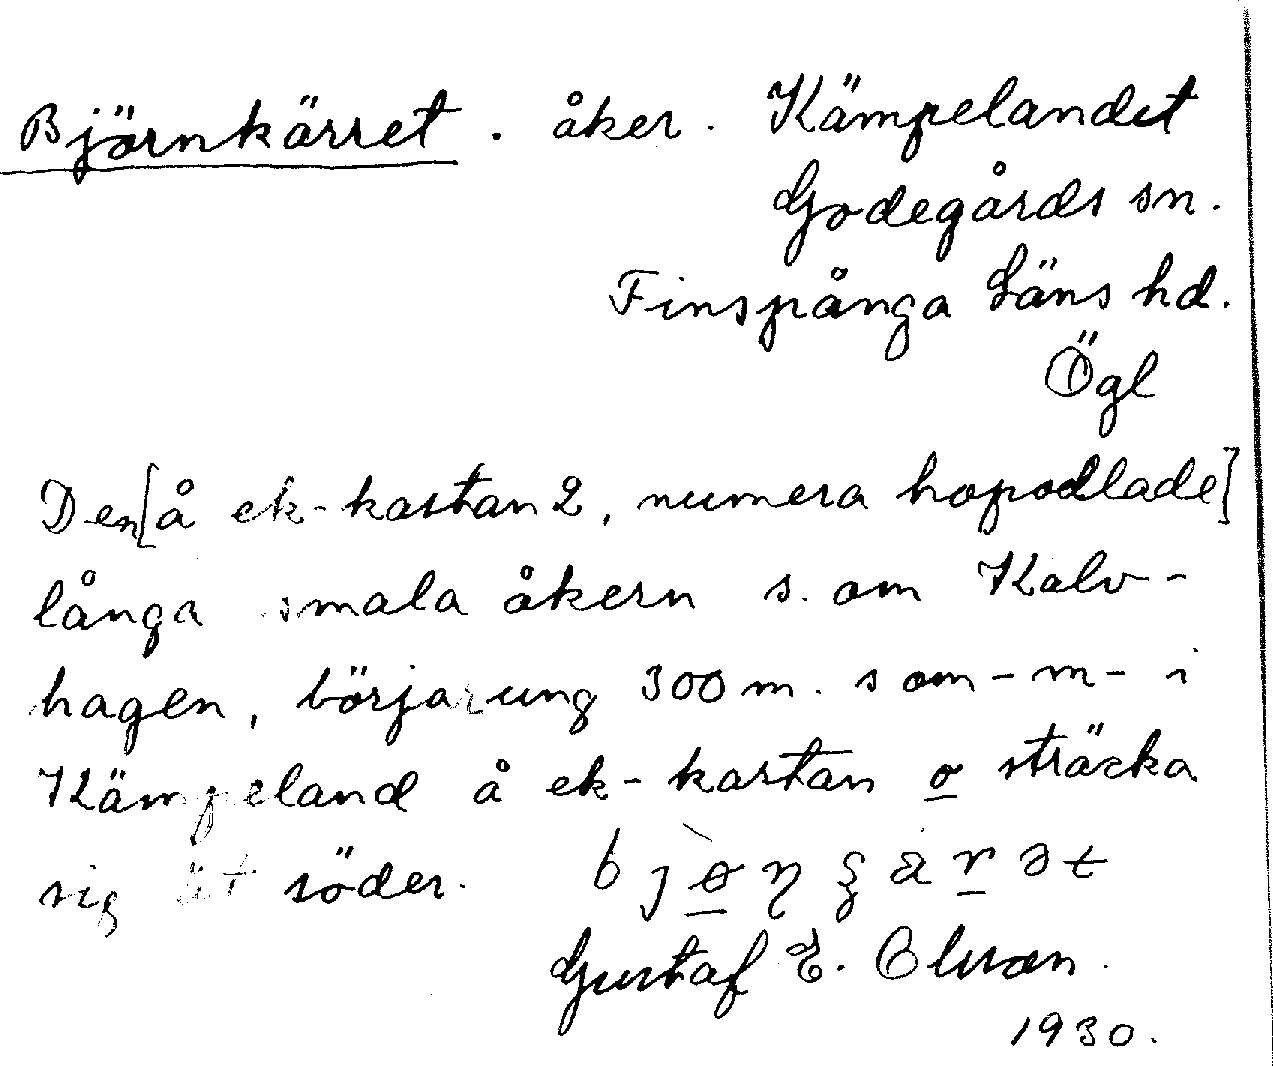 Björnkärret. åker. Kämpelandet
Godegårds sn.
Finspånga Läns hd.
Ögl
Den [å ek-kastan 2, numera hopodlade]
långa smala åkern s. om Kalv-
hagen, börjar ung 300 m. s om-m- i
Kämpeland å ek-kartan o sträcka
sig åt söder.
Gustaf E. Olsson.
1930.